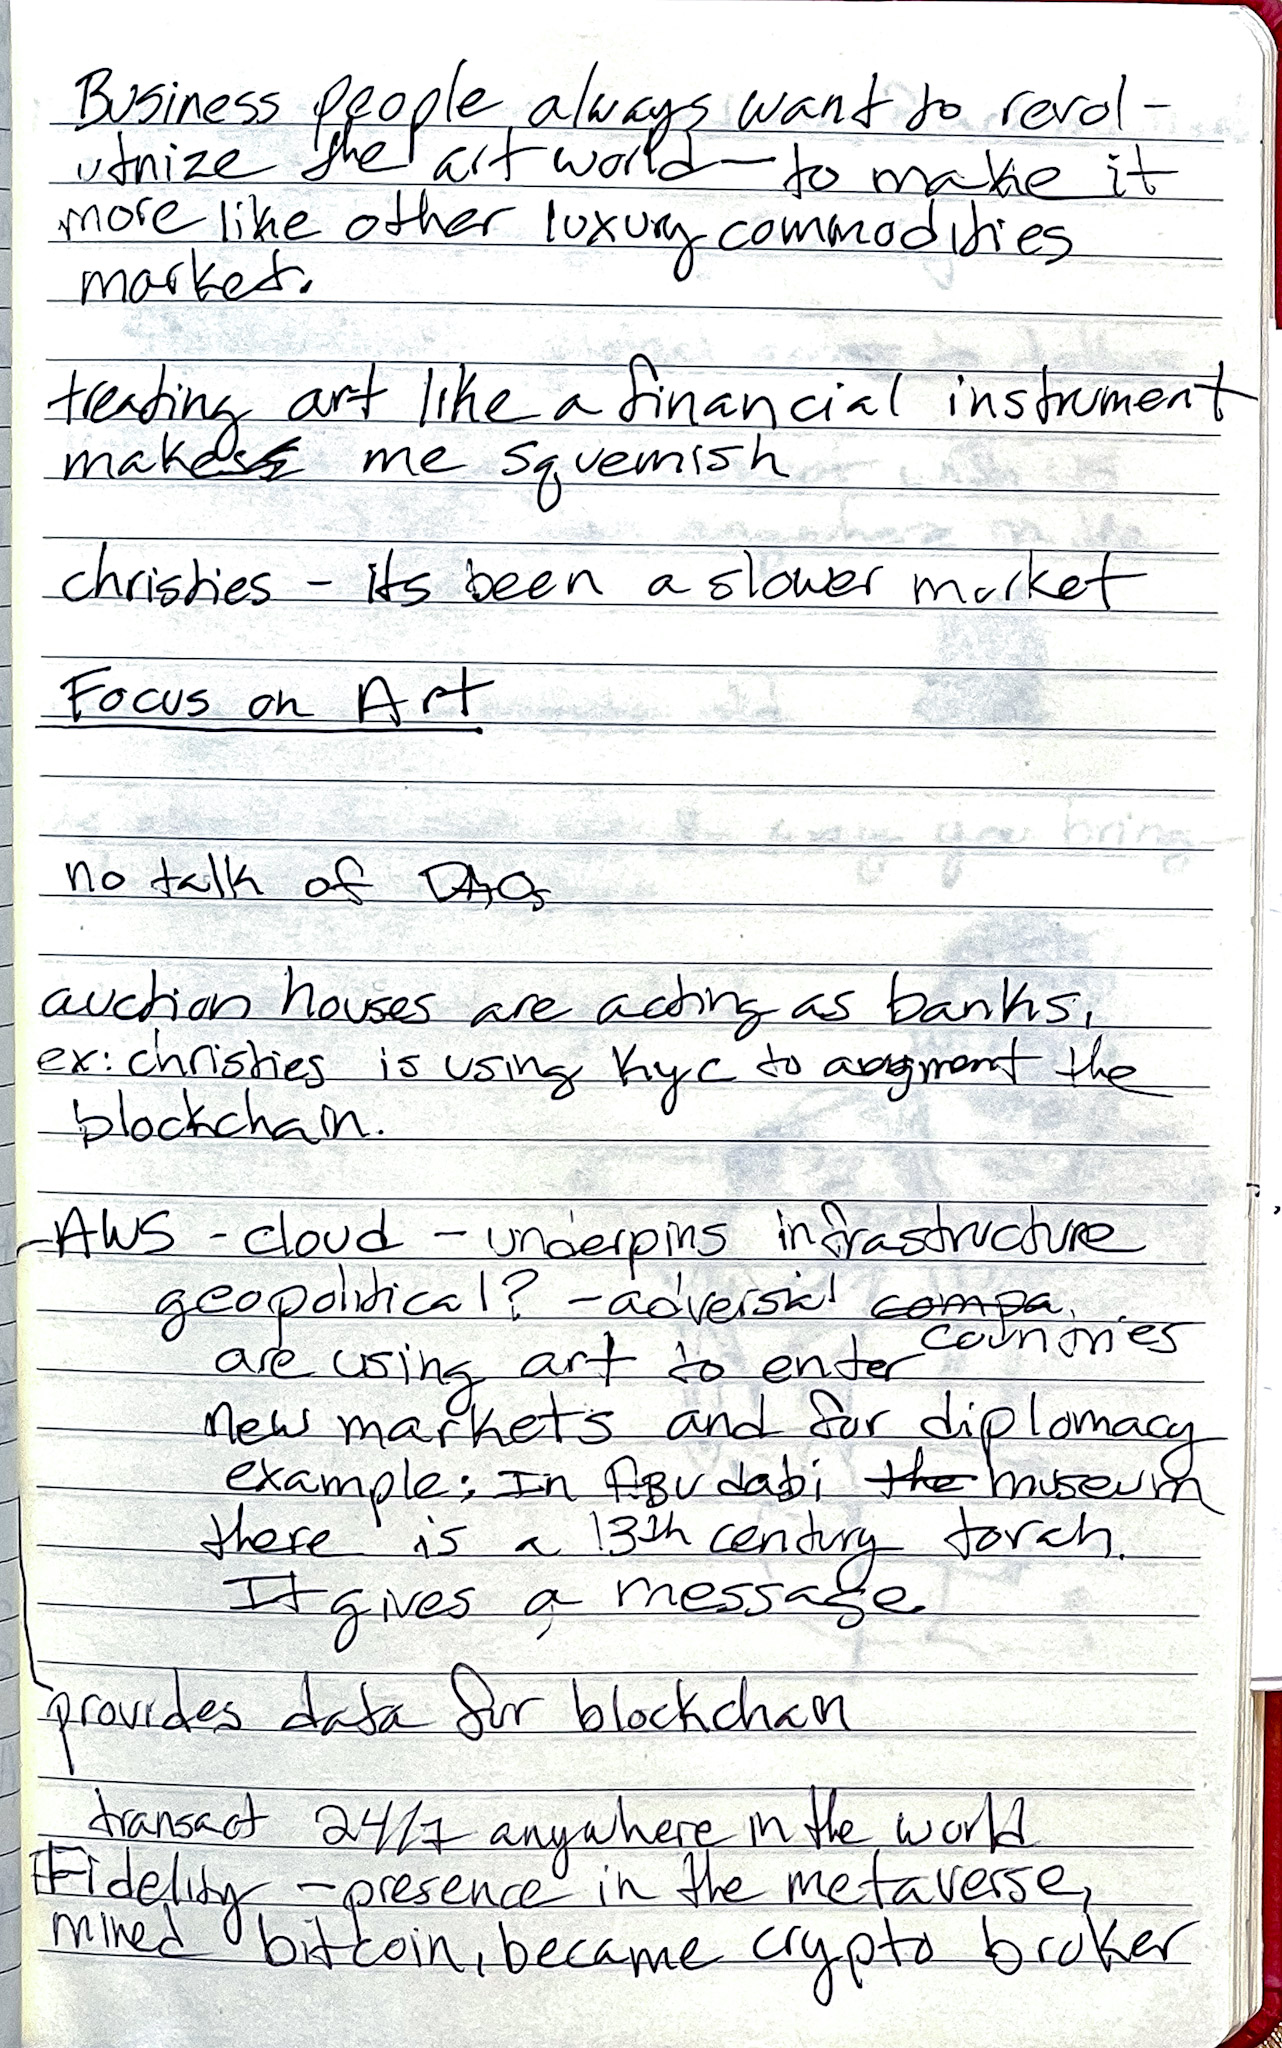 Business people always want to revol-
utnize the art world — to make it
more like other luxury commodities
market.
treating art like a financial instrument
makes me squemish
christies - its been a slower market
Focus on Art
no talk of DAOs
auction houses are acting as banks,
ex: christies is using kyc to augment the
blockchain.
AWS - cloud - underpins infrastructure
geopolitical? - adversial compa.
countries
are using art to enter
new markets and for diplomacy
example: In Abu dabi the museum
there is a 13th century torah.
It gives a message
provides data for blockchan
transact 24/7 anywhere in the world
Fidelity - presence in the metaverse,
mined bitcoin, became crypto broker